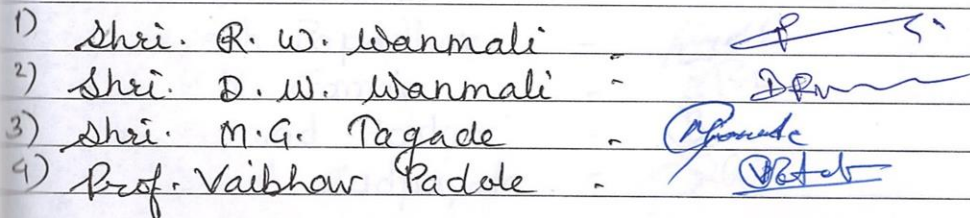 1) Shri. R. W. Wanmali -
2) Shri. D. W. Wanmali -
3) Shri. M.G. Tagade -
4) Prof. Vaibhav Padole -